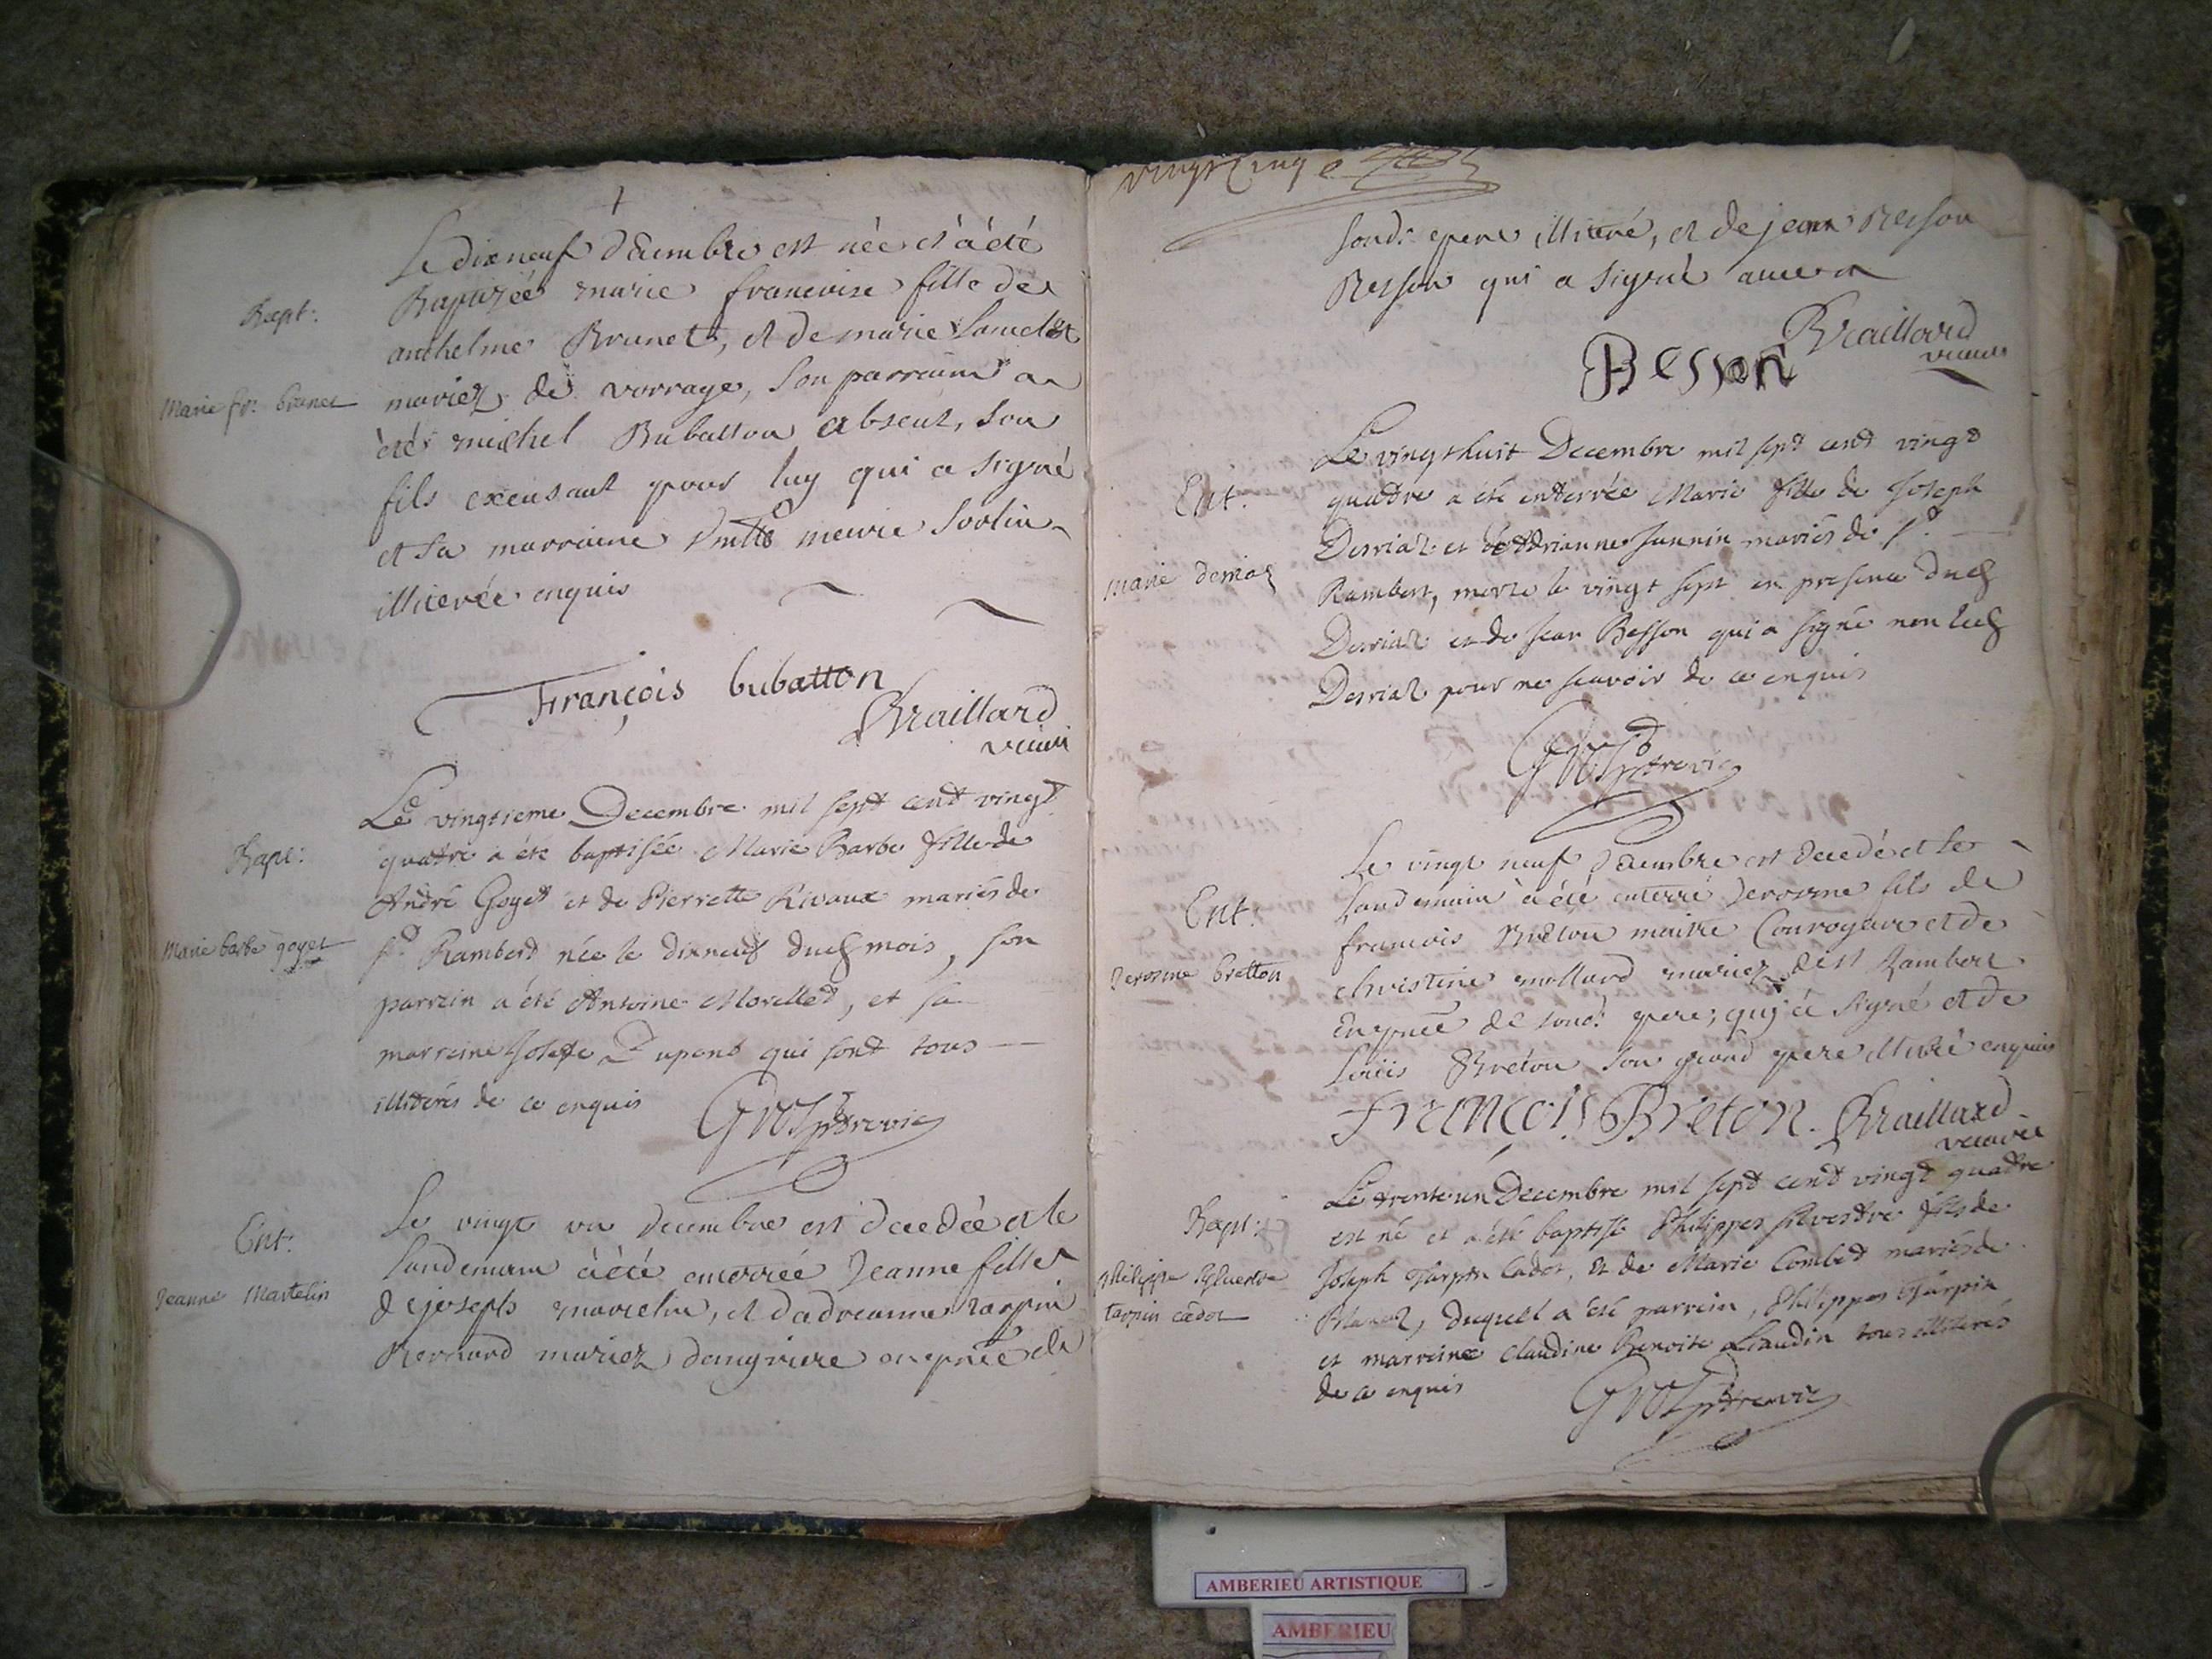 Le dixneuf décembre est née et à été
Bapt:
Baptizée marie francoise fille de
anthelme Brunet, et de marie
Marie fr: brunet
mariez de vorrage, son parrain a
été michel Bubatton absent, son
fils excusant pour luy qui a signé
et sa marraine marie
illiterée enquis
François bubatton
Braillard
vicaire
Le vingtieme Decembre mil sept cent vingt
Bapt:
quatre a été baptisée Marie Barbe fille de
André Goyet et de Pierrette Rivaux mariés de
Marie barbe goyet
st. Rambert née le dixneuf dud mois, son
parrein a été Antoine Morellet, et sa
marreine Josepte Dupont qui sont tous
illiterés de ce enquis
Le vingt un decembre est decedée et le
Ent:
landemain à été enterrée Jeanne fille
Jeanne Martelin
de joseph martelin, et dadrianne tarpin
Bernard mariez dangriere en pnce de
vingt cinq e
sond. pere illiteré, et de jean Besson
Besson qui a signé
Besson
Braillard
vicaire
Le vingt huit Decembre mil sept cent vingt
Ent.
quatre a été enterrée Marie fille de Joseph
Derriaz et Adrianne Jannin mariés de st.
marie derriaz
Rambert, morte le vingt sept en presence dud
Derriaz et de Jean Besson qui a signé non led
Derriaz pour ne scavoir de ce enquis
Le vingt neuf decembre est decedé et le
Ent:
landemain à été enterré Jerosme fils de
francois Breton maitre Couroyeur et de
Jerosme bretton
christine mollard mariez de st Rambert
En pnce de sond. pere, qui a signé et de
Loüis Breton son grand pere illiteré enquis
François Breton
Braillard
vicaire
Le trente un Decembre mil sept cent vingt quatre
Bapt:
est né et a été baptisé Philippes silvestre fils de
philippe sylvestre
Joseph Tarpin Cadot, et de Marie Combet mariés de
tarpin cadot
duquel a été parrein, Philippes Tarpin
et marreine Claudine Benoite Liaudin tous illiterés
de ce enquis
AMBERIEU ARTISTIQUE
AMBERIEU